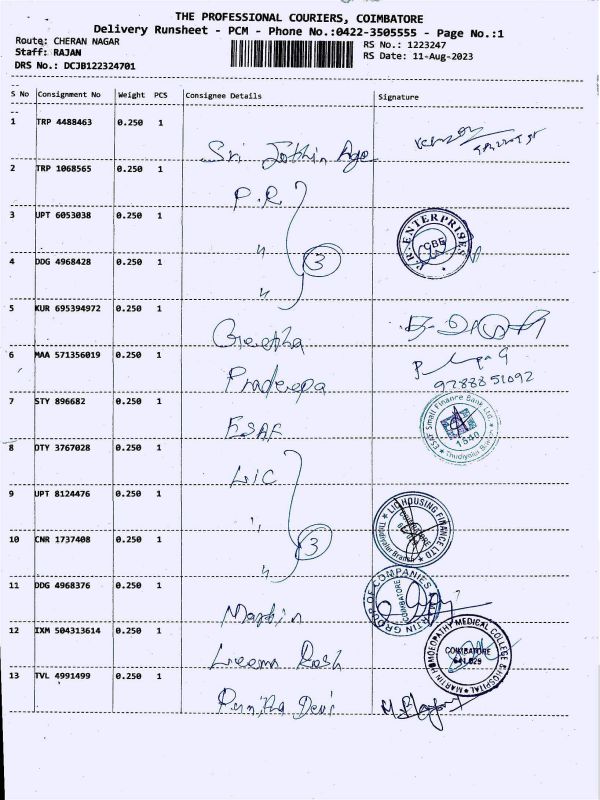 THE PROFESSIONAL COURIERS, COIMBATORE
Delivery Runsheet - PCM - Phone No.:0422-3505555 - Page No.:1
Route: CHERAN NAGAR
RS No.: 1223247
Staff: RAJAN
RS Date: 11-Aug-2023
DRS No.: DCJB122324701
S No Consignment No Weight PCS Consignee Details Signature
1 TRP 4488463 0.250 1
Sri
2 TRP 1068565 0.250 1
P.R
3 UPT 6053038 0.250 1
P.R. ENTERPRISES CBE
"
4 DDG 4968428 0.250 1
3
"
5 KUR 695394972 0.250 1
Geetha
6 MAA 571356019 0.250 1
Pradeepa
9288851092
7 STY 896682 0.250 1
ESAF
ESAF Small Finance Bank Ltd. 1540 Thudiyalur Branch
8 DTY 3767028 0.250 1
LIC
9 UPT 8124476 0.250 1
"
LIC HOUSING FINANCE LTD COIMBATORE Thudiyalur Branch
10 CNR 1737408 0.250 1
3
"
11 DDG 4968376 0.250 1
Martin
MARTIN GROUP OF COMPANIES COIMBATORE
12 IXM 504313614 0.250 1
MARTIN HOMOEOPATHY MEDICAL COLLEGE & HOSPITAL COIMBATORE 641 029
13 TVL 4991499 0.250 1
Punitha Devi